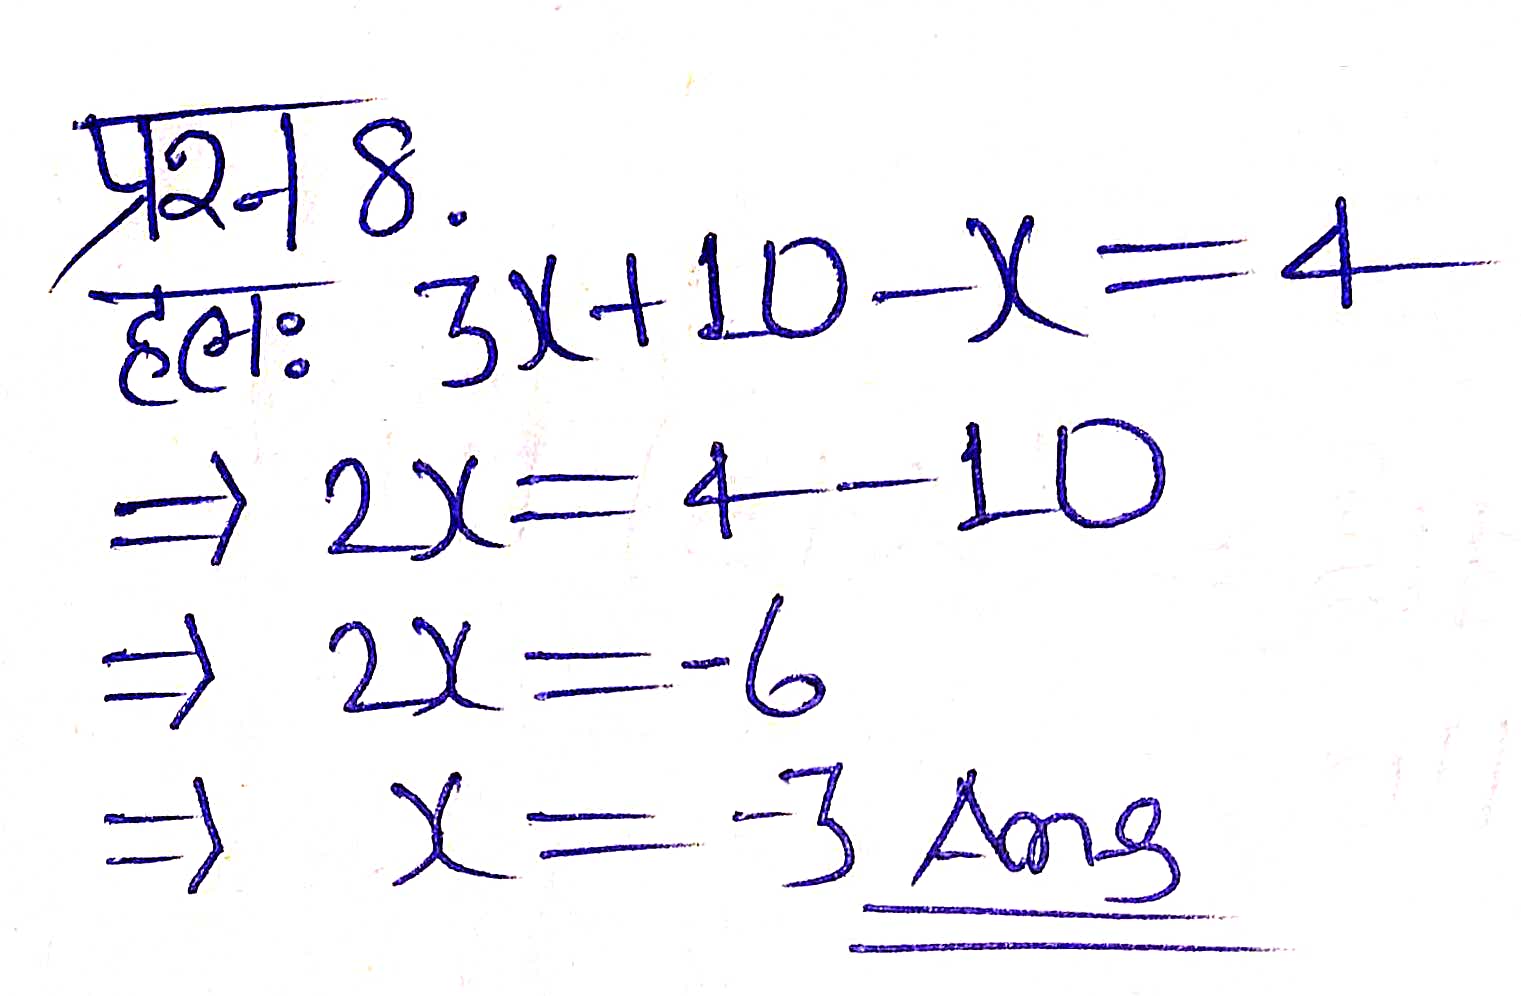 प्रश्न 8.
हलः 3x+10-x=4
⇒ 2x=4-10
⇒ 2x=-6
⇒ x=-3 Ans